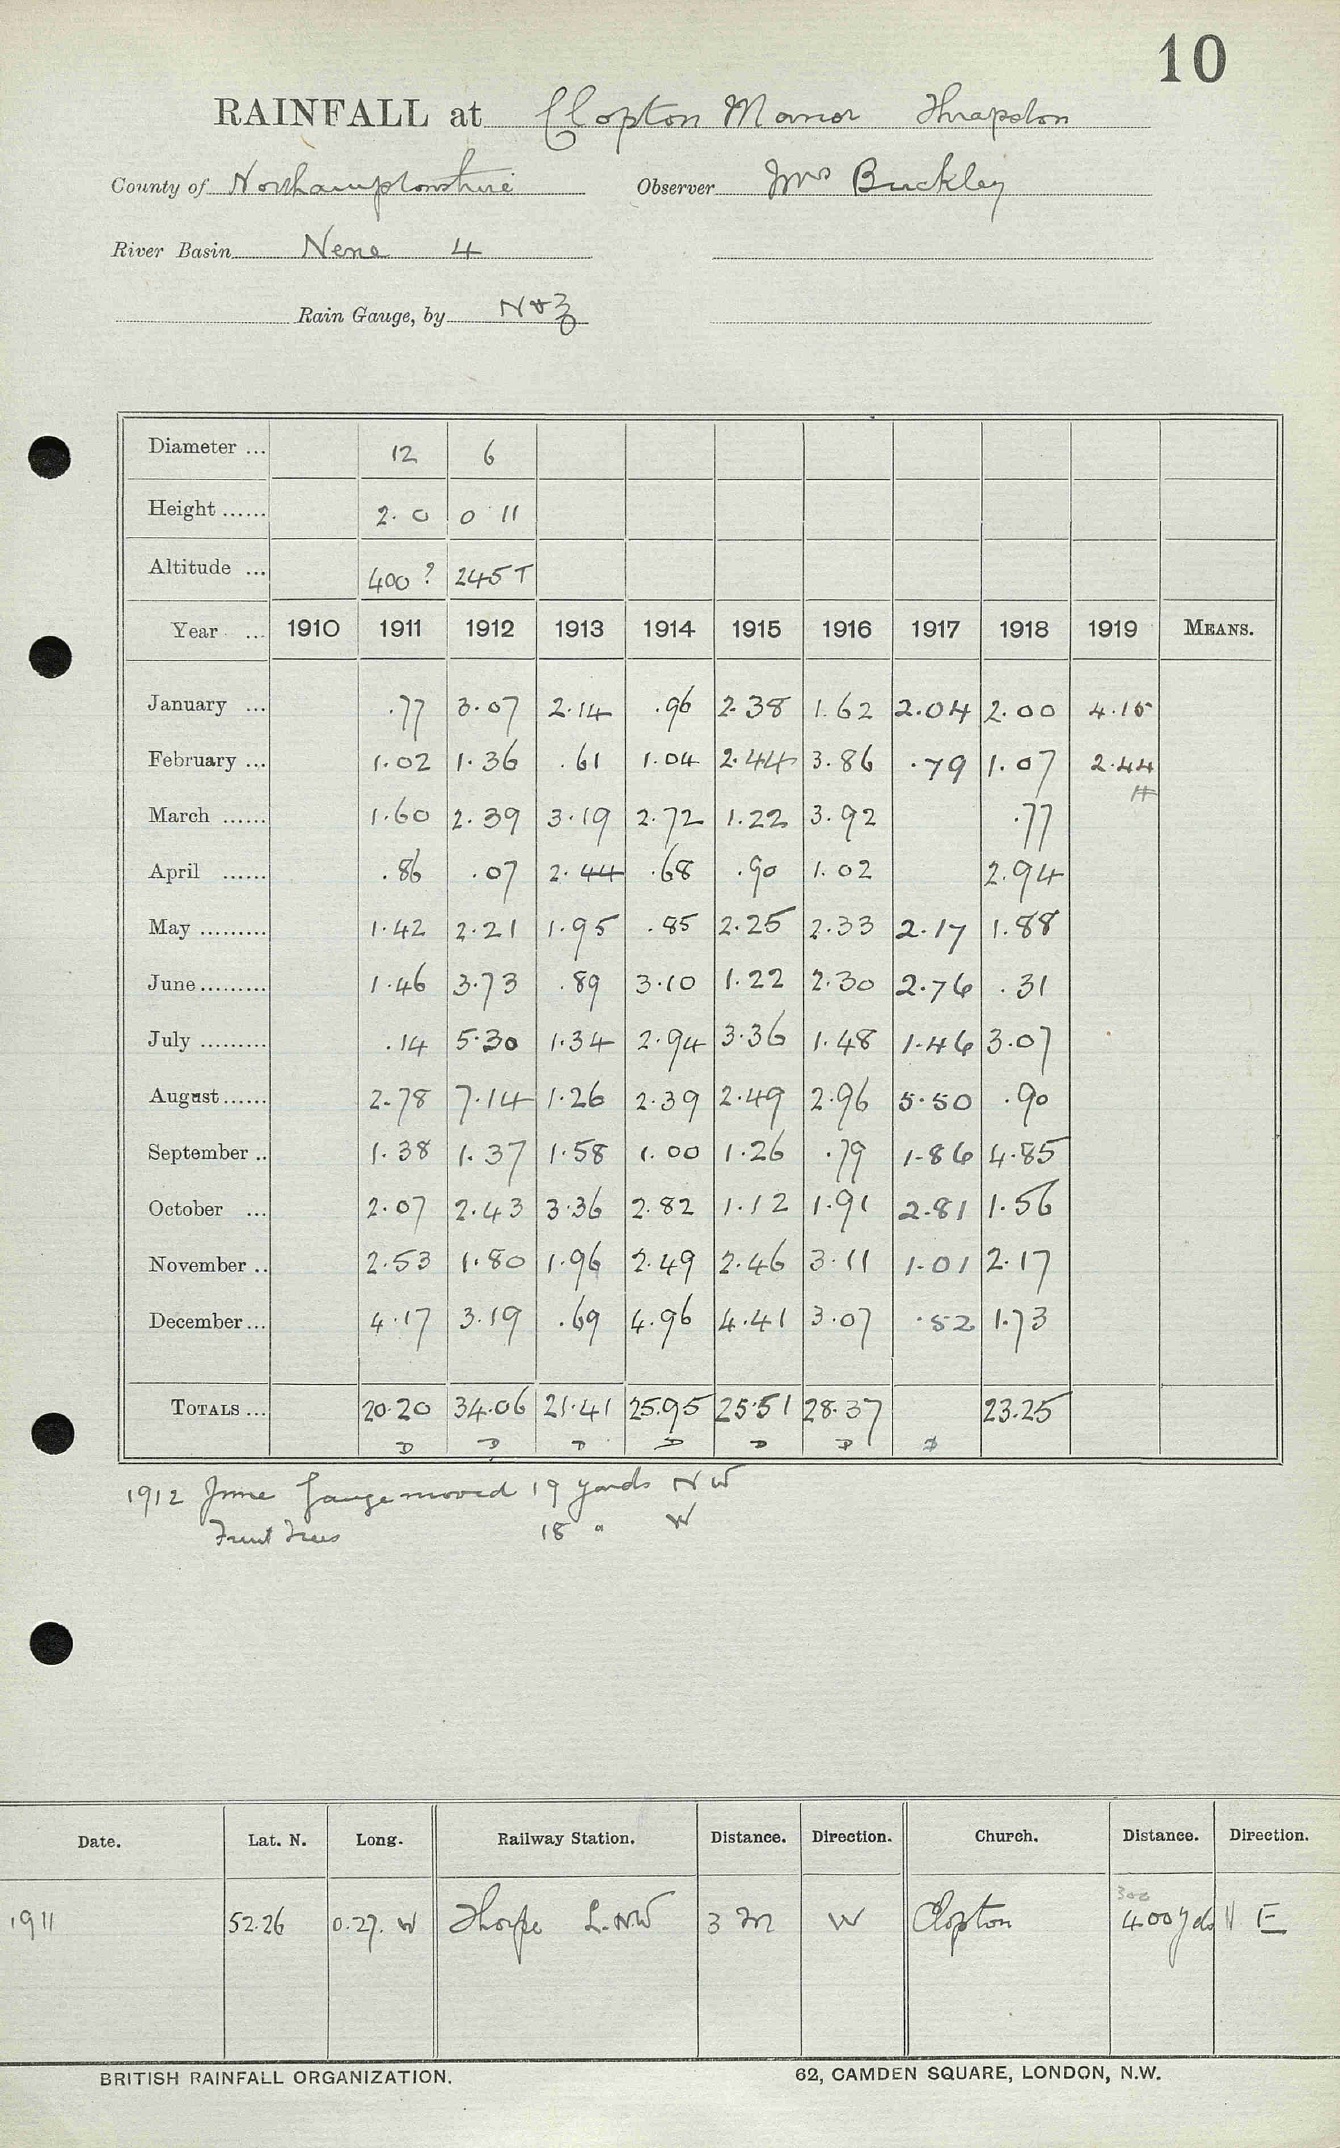 10
RAINFALL at Clopton Manor Thrapston
County of Northamptonshire Observer Mrs Buckley
River Basin Nene 4
Rain Gauge, by N & Z
Diameter ... 12 6
Height ...... 2. 0 0 11
Altitude ... 400 ? 245 T
Year ... 1910 1911 1912 1913 1914 1915 1916 1917 1918 1919 MEANS.
January ... .77 3.07 2.14 .96 2.38 1.62 2.04 2.00 4.15
February ... 1.02 1.36 .61 1.04 2.44 3.86 .79 1.07 2.44
March ...... 1.60 2.39 3.19 2.72 1.22 3.92 .77
April ...... .86 .07 2.44 .68 .90 1.02 2.94
May ......... 1.42 2.21 1.95 .85 2.25 2.33 2.17 1.88
June ......... 1.46 3.73 .89 3.10 1.22 2.30 2.76 .31
July ......... .14 5.30 1.34 2.94 3.36 1.48 1.46 3.07
August ...... 2.78 7.14 1.26 2.39 2.49 2.96 5.50 .90
September .. 1.38 1.37 1.58 1.00 1.26 .79 1.86 4.85
October ... 2.07 2.43 3.36 2.82 1.12 1.91 2.81 1.56
November .. 2.53 1.80 1.96 2.49 2.46 3.11 1.01 2.17
December ... 4.17 3.19 .69 4.96 4.41 3.07 .52 1.73
TOTALS ... 20.20 34.06 21.41 25.95 25.51 28.37 23.25
D D D D D D D
1912 June Gauge moved 19 yards NW
Fruit Trees 18 " W
Date. Lat. N. Long. Railway Station. Distance. Direction. Church. Distance. Direction.
300
1911 52.26 0.27. W Thorpe L.NW 3 m W Clopton 400 yds E
BRITISH RAINFALL ORGANIZATION. 62, CAMDEN SQUARE, LONDON, N.W.